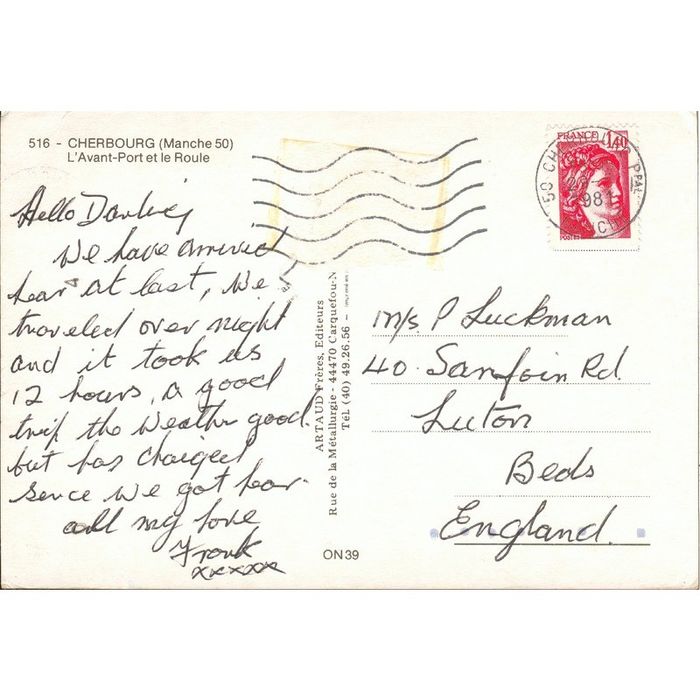 516 - CHERBOURG (Manche 50)
L'Avant-Port et le Roule
Hello Darling
We have arrived
hear at last, We
traveled over night
and it took us
12 hours, a good
trip the Weather good.
but has changed
sence we got hear
all my love
Frank
xxxxxx
ARTAUD Frères, Editeurs
Rue de la Métallurgie - 44470 Carquefou-N
Tél (40) 49.26.56 -
ON 39
FRANCE 1,40
POSTES
50 CH PPAL
198
m/s. P Luckman
40. Sanfoin Rd.
Luton
Beds
England.